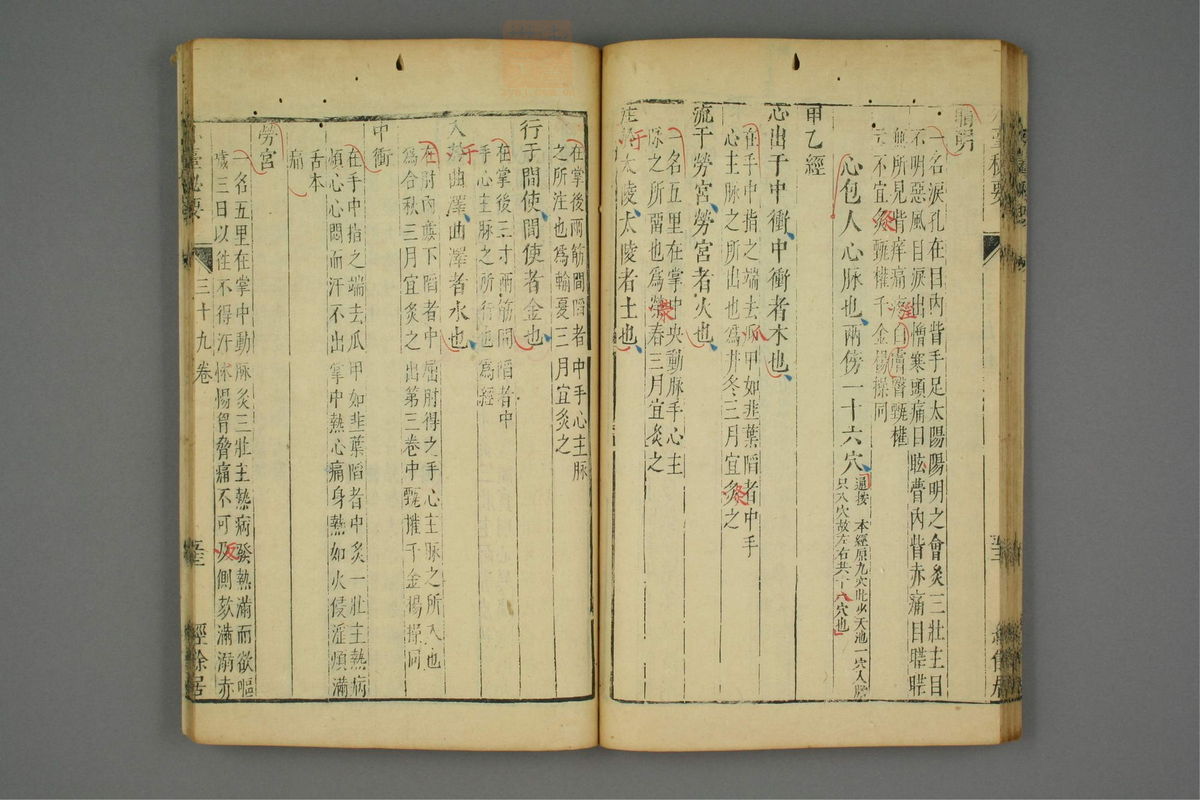 睛明
一名淚孔在目內眥手足太陽陽明之會灸三壯主目
不明惡風目淚出憎寒頭痛目眩瞢內眥赤痛目䀮䀮
無所見眥痒痛淫白膚瞖甄權
云不宜灸甄權千金楊操同
心包人心脉也兩傍一十六穴
通按 本經原九穴此少天池一穴入膽
只八穴故左右共十六穴也
甲乙經
心出于中衝中衝者木也
在手中指之端去爪甲如韭葉陷者中手
心主脉之所出也為井冬三月宜灸之
流于勞宮勞宮者火也
一名五里在掌中央動脉手心主
脉之所畱也為滎春三月宜灸之
注于太陵太陵者土也
在掌後兩筋間陷者中手心主脉
之所注也為輸夏三月宜灸之
行于間使間使者金也
在掌後三寸兩筋間陷者中
手心主脉之所行也為經
入于曲澤曲澤者水也
在肘內廉下陷者中屈肘得之手心主脉之所入也
為合秋三月宜灸之出第三卷中甄權千金楊操同
中衝
在手中指之端去爪甲如韭葉陷者中灸一壯主熱病
煩心心悶而汗不出掌中熱心痛身熱如火侵淫煩滿
舌本
痛
勞宮
一名五里在掌中動脉灸三壯主熱病發熱滿而欲嘔
歲三日以往不得汗怵惕胷脅痛不可反側欬滿溺赤
三十九卷
經餘居